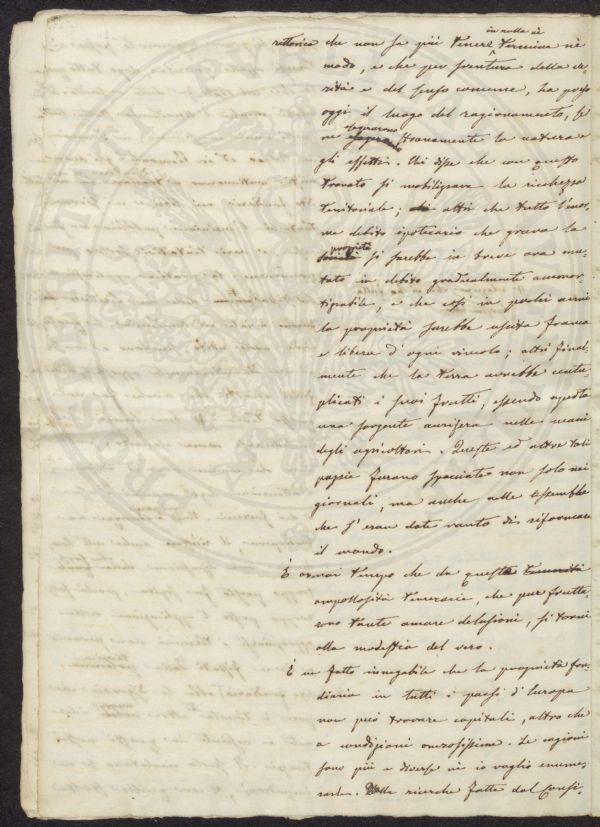 in nulla nè
rettorica che non ha più tenere termine nè
modo, e che per sventura della ve-
rità e del senso comune, ha preso
oggi il luogo del ragionamento, se
ne sognarono stranamente la natura e
gli effetti. Chi disse che con questo
trovato si mobilizzava la ricchezza
territoriale; altri che tutto l'enor-
me debito ipotecario che grava la
proprietà si sarebbe in breve ora mu-
tato in debito gradualmente ammor-
tizzabile, e che così in pochi anni
la proprietà sarebbe uscita franca
e libera d'ogni vincolo; altri final-
mente che la terra avrebbe centu
plicati i suoi frutti, essendo aperta
una sorgente aurifera nelle mani
degli agricoltori. Queste ed altre tali
pazzie furono spacciate non solo nei
giornali, ma anche nelle assemblee
che s'eran date vanto di riformare
il mondo.
È ormai tempo che da queste
ampollosità temerarie, che pur frutta-
rono tante amare delusioni, si torni
alla modestia del vero.
È un fatto innegabile che la proprietà fon-
diaria in tutti i paesi d'Europa
non può trovare capitali, altro che
a condizioni onerosissime. Le cagioni
sono più e diverse nè io voglio enume-
rarle. Dalle ricerche fatte dal Consi-